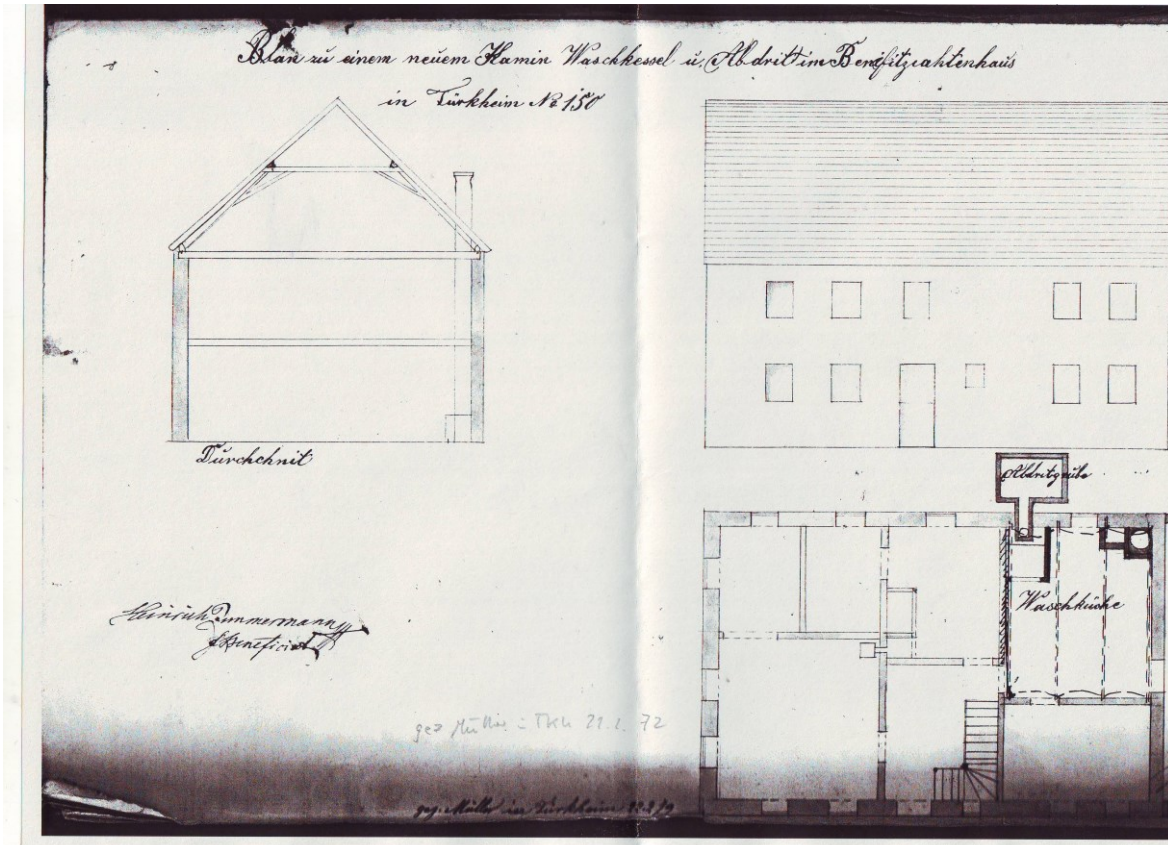 Plan zu einem neuem Kamin Waschkessel u. Abdritt im Benifitziahtenhaus
in Türkheim No 150
Durchchnit
Abdritgrube
Waschküche
Heinrich Zimmermann
Beneficiat
gez Müller Tkh 21.2.72
gez. Müller in Türkheim